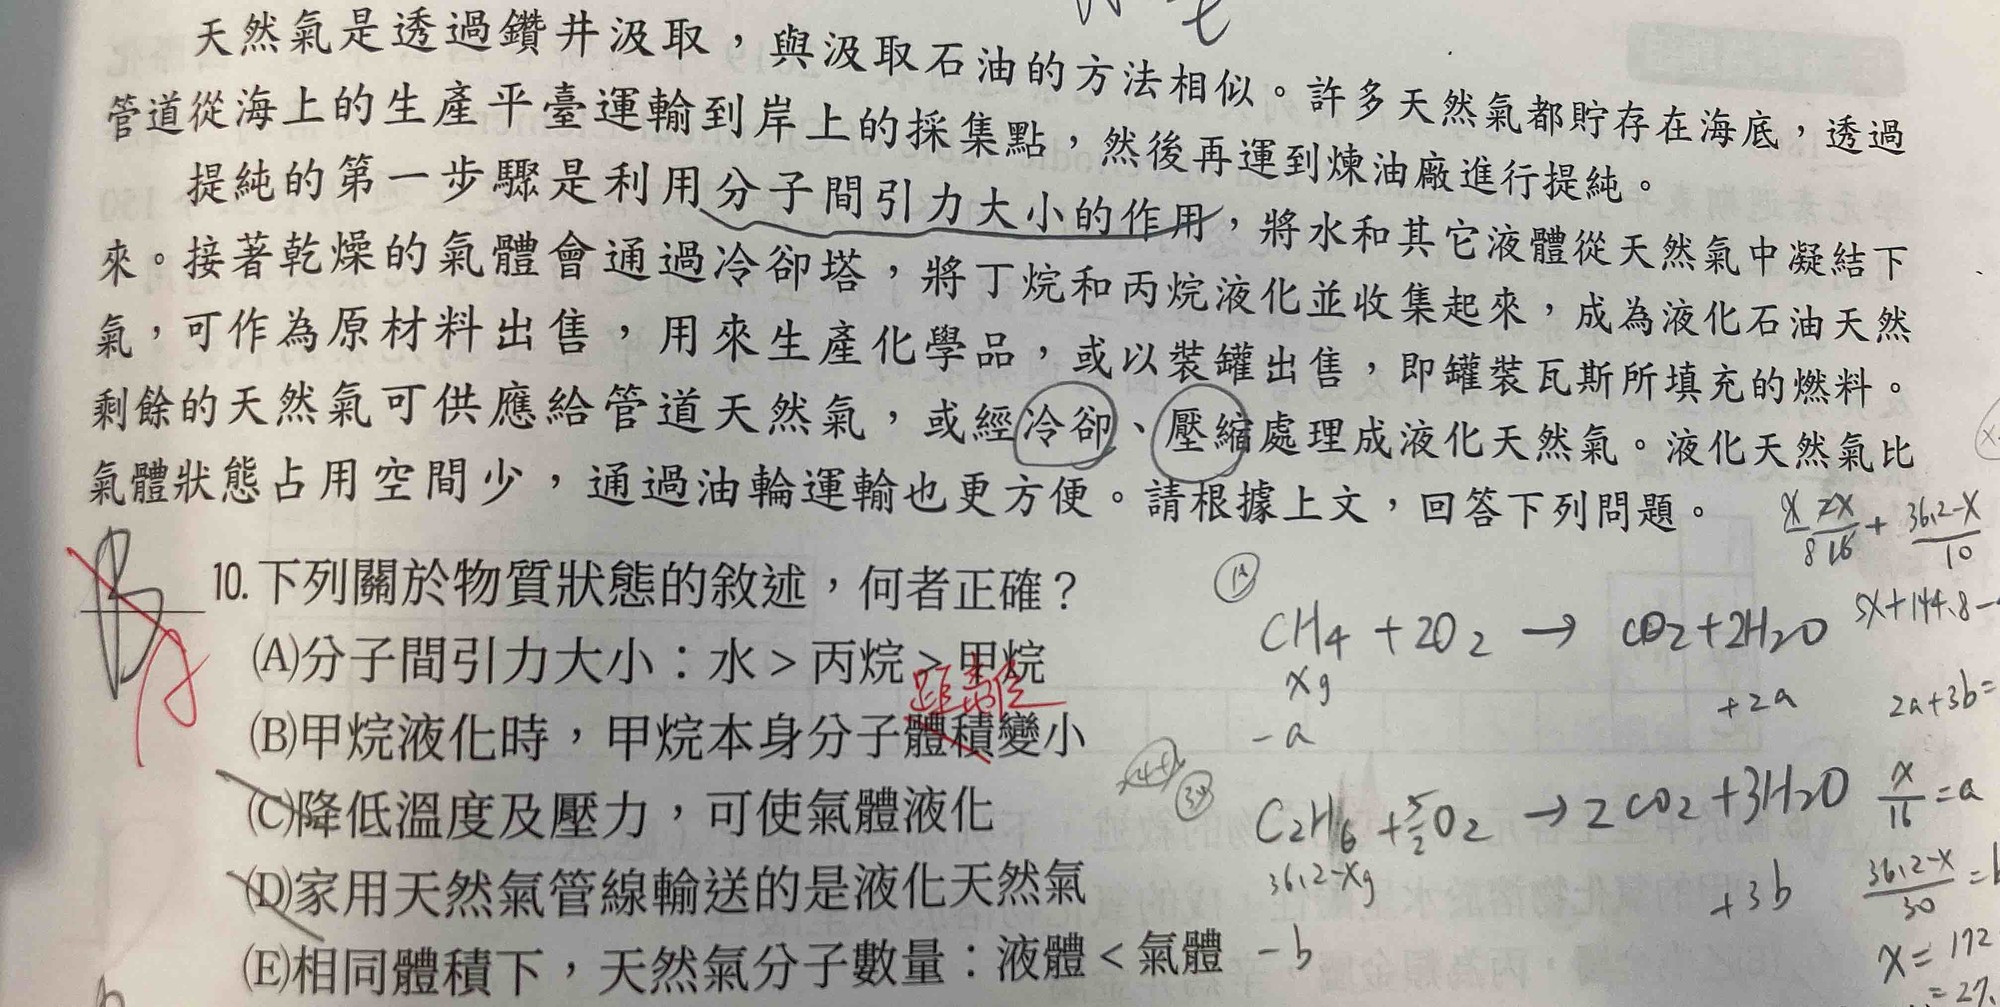 天然氣是透過鑽井汲取，與汲取石油的方法相似。許多天然氣都貯存在海底，透過
管道從海上的生產平臺運輸到岸上的採集點，然後再運到煉油廠進行提純。
提純的第一步驟是利用分子間引力大小的作用，將水和其它液體從天然氣中凝結下
來。接著乾燥的氣體會通過冷卻塔，將丁烷和丙烷液化並收集起來，成為液化石油天然
氣，可作為原材料出售，用來生產化學品，或以裝罐出售，即罐裝瓦斯所填充的燃料。
剩餘的天然氣可供應給管道天然氣，或經冷卻、壓縮處理成液化天然氣。液化天然氣比
氣體狀態占用空間少，通過油輪運輸也更方便。請根據上文，回答下列問題。
10.下列關於物質狀態的敘述，何者正確？
(A)分子間引力大小：水>丙烷>甲烷
距離
(B)甲烷液化時，甲烷本身分子體積變小
(C)降低溫度及壓力，可使氣體液化
(D)家用天然氣管線輸送的是液化天然氣
(E)相同體積下，天然氣分子數量：液體<氣體
36.2-x
10
CH4 + 2O2 → CO2 + 2H2O
5x+144.8-
xg
-a
+2a
2a+3b=
C2H6 + O2 → 2CO2 + 3H2O
x/16 = a
36.2-xg
-b
+3b
36.2-x/30 =
x=172
=27.